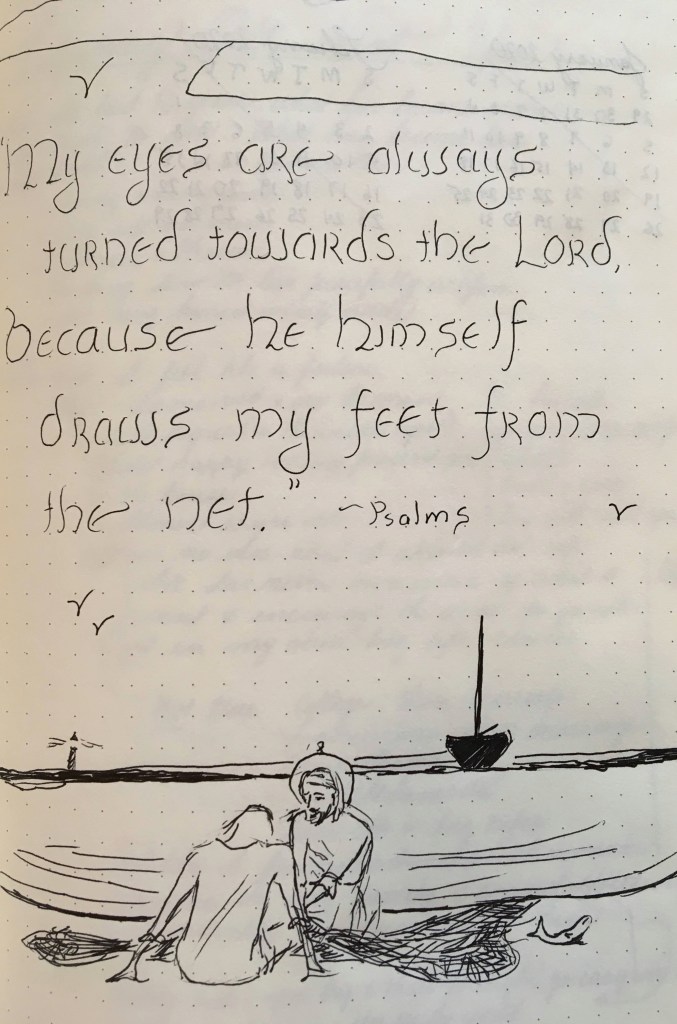 "My eyes are always
turned towards the Lord,
because he himself
draws my feet from
the net." ~Psalms